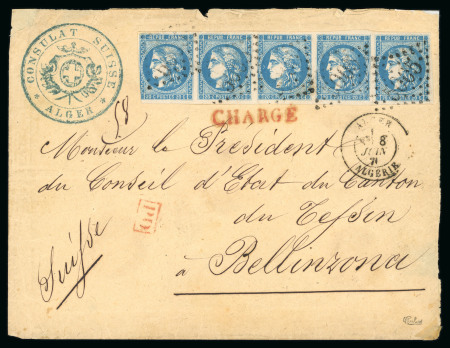 CONSULAT SUISSE
ALGER
REPUB. FRANC. REPUB. FRANC. REPUB. FRANC. REPUB. FRANC. REPUB. FRANC.
CHARGÉ
ALGER
8
JUIN
71
ALGÉRIE
Monsieur le Président
du Conseil d'Etat du Canton
du Tessin
à Bellinzona
PD
Suisse